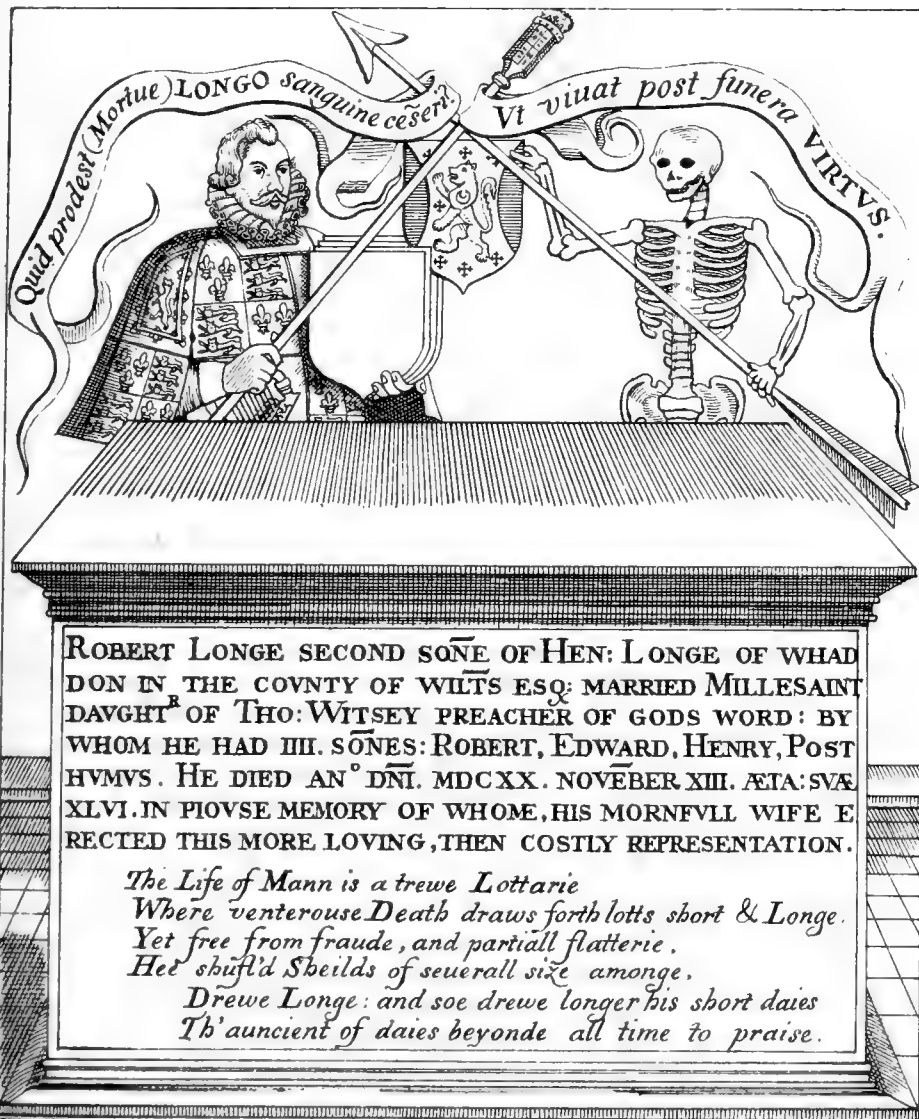 Quid prodest (Mortue) LONGO sanguine cẽseri?
Vt viuat post funera VIRTVS.
ROBERT LONGE SECOND SOÑE OF HEN: LONGE OF WHAD
DON IN THE COVNTY OF WILTS ESQ: MARRIED MILLESAINT
DAVGHTᴿ OF THO: WITSEY PREACHER OF GODS WORD: BY
WHOM HE HAD IIII. SOÑES: ROBERT, EDWARD, HENRY, POST
HVMVS. HE DIED AN° DÑI. MDCXX. NOVẼBER XIII. ÆTA: SVÆ
XLVI. IN PIOVSE MEMORY OF WHOME, HIS MORNFVLL WIFE E
RECTED THIS MORE LOVING, THEN COSTLY REPRESENTATION.
The Life of Mann is a trewe Lottarie
Where venterouse Death draws forth lotts short & Longe.
Yet free from fraude, and partiall flatterie,
Hee shufl'd Sheilds of seuerall size amonge,
Drewe Longe: and soe drewe longer his short daies
Th'auncient of daies beyonde all time to praise.